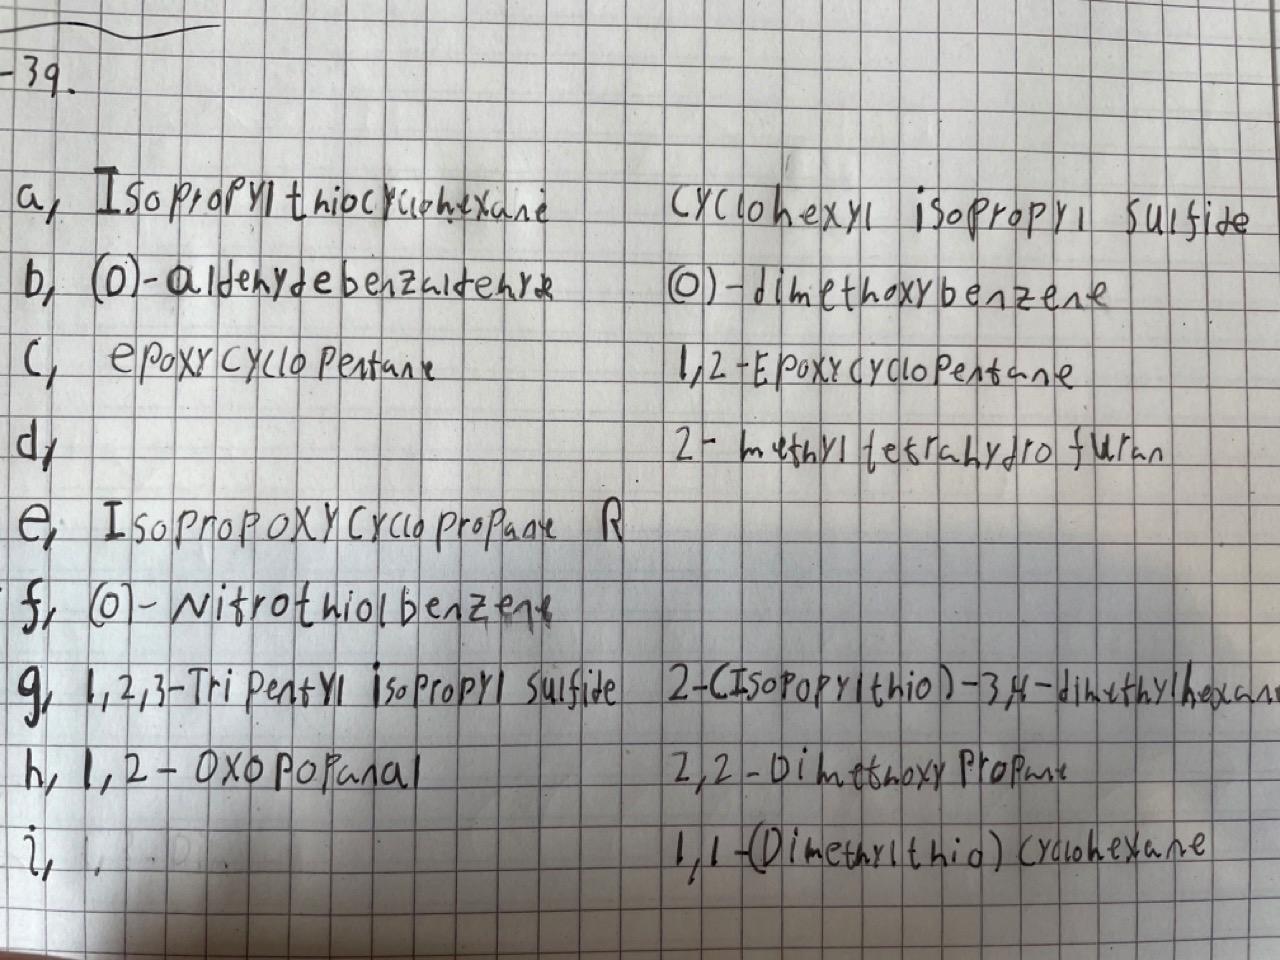 -39.
a, Isopropylthiocyclohexane cyclohexyl isopropyl sulfide
b, (o)-aldehydebenzaldehyde (o)-dimethoxybenzene
c, epoxycyclopentane 1,2-Epoxycyclopentane
d, 2-methyltetrahydrofuran
e, Isopropoxycyclopropane R
f, (o)-Nitrothiolbenzene
g, 1,2,3-Tripentyl isopropyl sulfide 2-(Isopopylthio)-3,4-dimethylhexan
h, 1,2-oxopopanal 2,2-Dimethoxypropane
i, 1,1-(Dimethylthio)cyclohexane